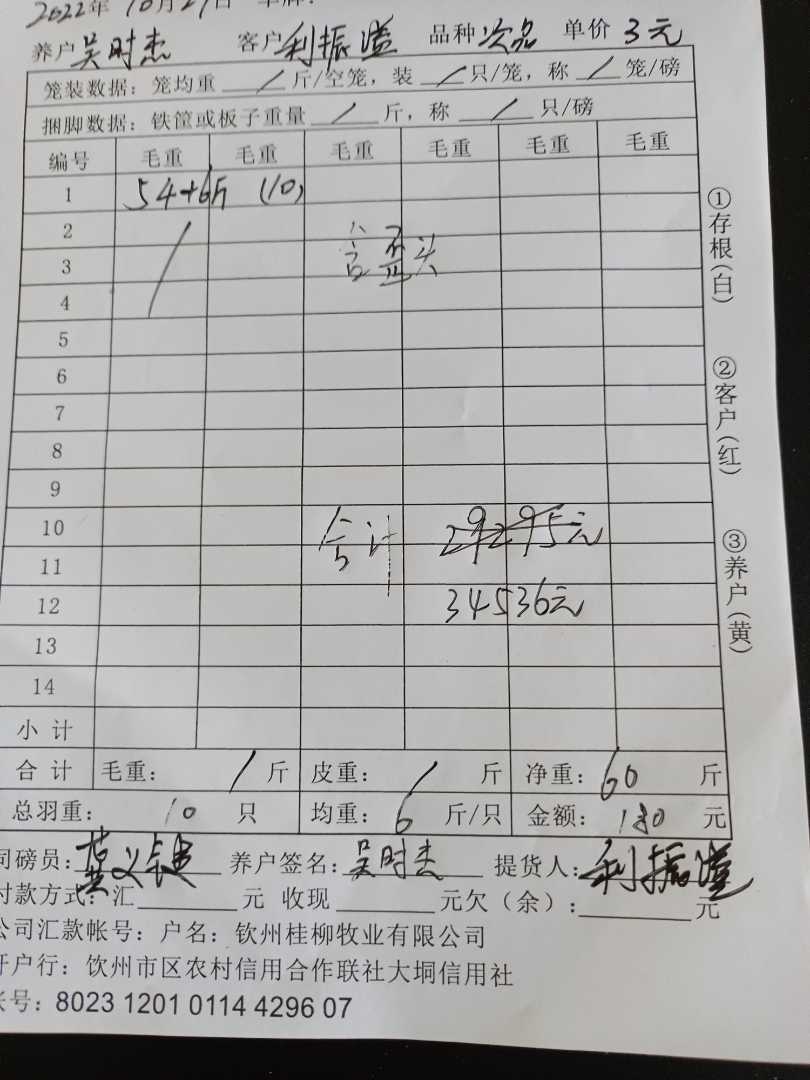 2022年 10月27日 车牌:
养户 吴时杰 客户 利振溢 品种 次品 单价 3元
笼装数据: 笼均重 / 斤/空笼, 装 / 只/笼, 称 / 笼/磅
捆脚数据: 铁筐或板子重量 / 斤, 称 / 只/磅
编号 毛重 毛重 毛重 毛重 毛重 毛重
1 54+6斤 (10)
2
3
4
5
6
7
8
9
10 合计 29295元
11
12 34536元
13
14
小计
合计 毛重: / 斤 皮重: / 斤 净重: 60 斤
总羽重: 10 只 均重: 6 斤/只 金额: 180 元
司磅员: 养户签名: 吴时杰 提货人: 利振溢
付款方式: 汇 元 收现 元欠(余): 元
公司汇款帐号: 户名: 钦州桂柳牧业有限公司
开户行: 饮州市区农村信用合作联社大垌信用社
帐号: 8023 1201 0114 4296 07
①存根(白)
②客户(红)
③养户(黄)